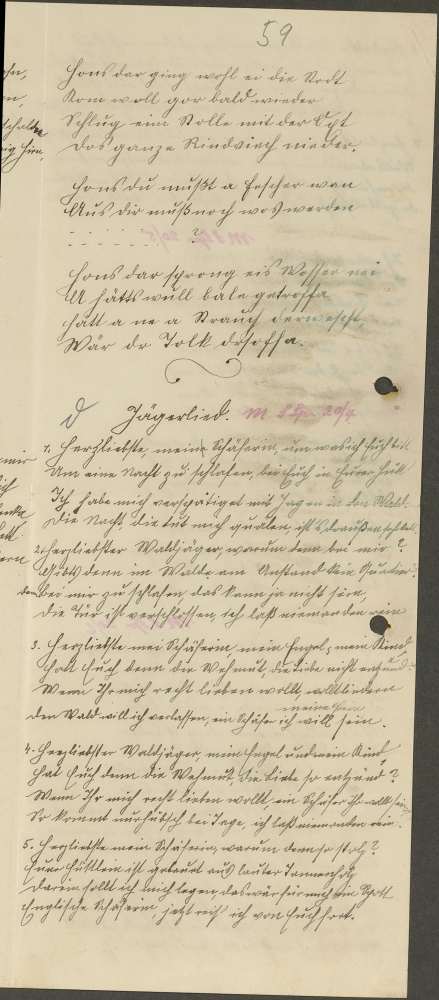 59
Hons dar ging wohl ei die Stodt
Kom woll gor bald wieder
Schlug eim Stolle mit der Axt
Dos ganze Rindviech nieder.
Hons du mußt a Fescher wan
Aus dir muß noch wos werden
?
Hons dar sprong eis Wosser nei
A hätts wull bale getroffa
Hätt a ne a Strauch derwescht
Wär dr Tolk dersoffa.
d Jägerlied.
1. Herzliebste, meine Schäferin, um was ich Euch bitt
Um eine Nacht zu schlafen, bei Euch in Eurer Hütt
Ich habe mich verspätiget mit Jagen in dem Wald
Die Nacht, die tut mich quälen, ist draußen
2. Herzliebster Waldjäger, warum denn bei mir?
Gibts denn im Walde am Anstand kein Quartier
denn bei mir zu schlafen das kann ja nicht sein,
Die Tür ist verschlossen, ich laß niemanden rein
3. Herzliebste mei Schäferin mein Engel, mein Kind
Hat Euch denn die Wehmut, die Liebe nicht
Wenn Ihr mich recht lieben wollt,
Den Wald will ich verlassen, ein Schäfer ich will sein.
4. Herzliebster Waldjäger, mein Engel und mein Kind
Hat Euch denn die Wehmut, die Liebe so entzünd?
Wenn Ihr mich recht lieben wollt, ein Schäfer Ihr wollt sein,
So kommt nur hübsch bei Tage, ich laß niemanden rein.
5. Herzliebste mein Schäferin, warum denn so stolz?
Euer Hüttlein ist gebaut aus lauter Tannenholz
Darein sollt ich mich legen, das wär für mich ein Spott
Englische Schäferin, jetzt reis' ich von Euch fort.